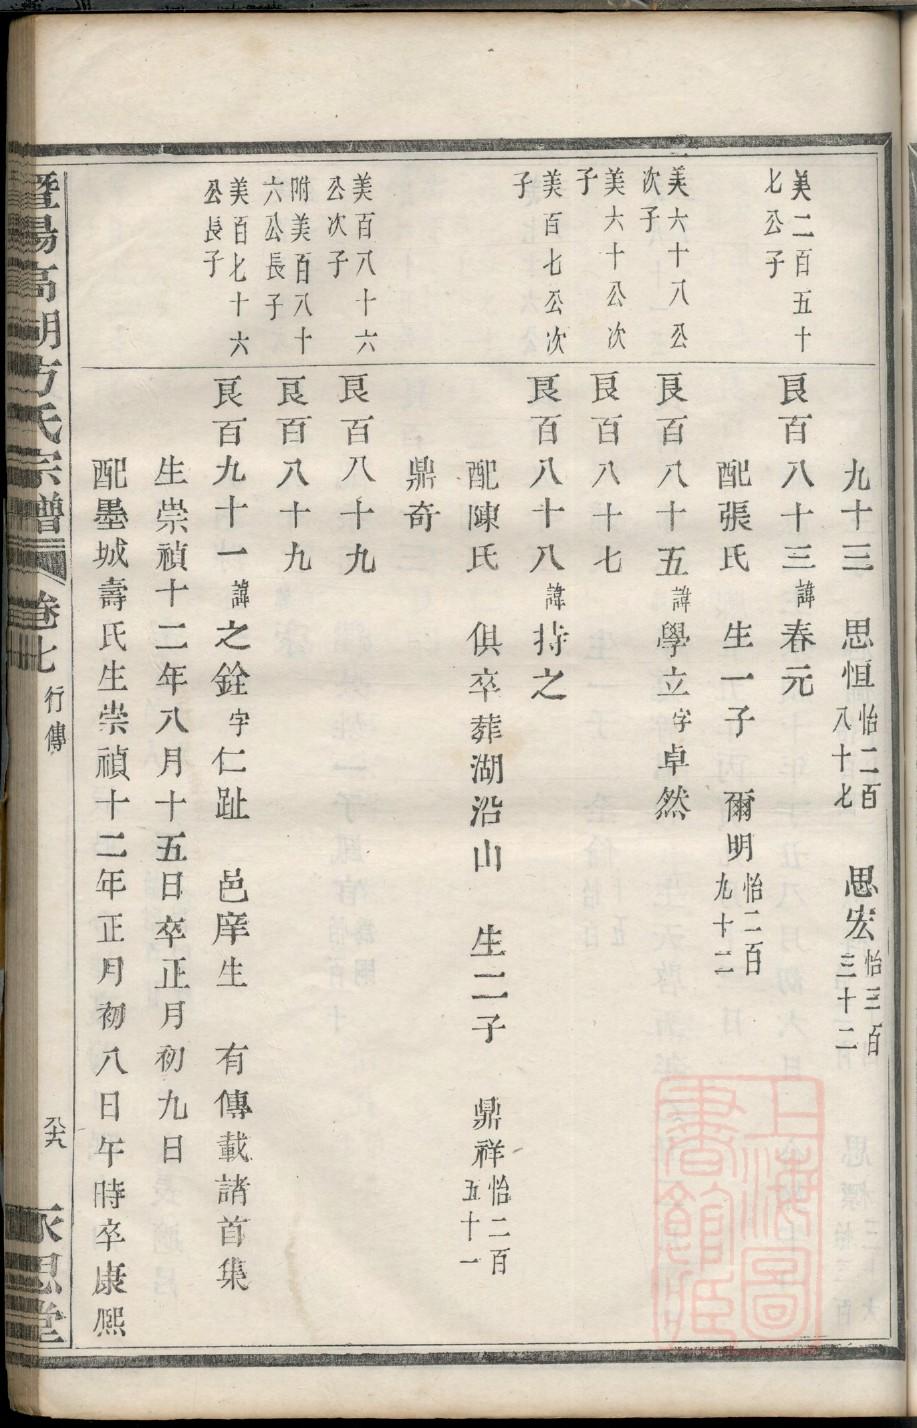 九十三　思恒怡二百八十七　思宏怡三百三十二
美二百五十七公子
良百八十三諱春元
配張氏　生一子　爾明怡二百九十二
美六十八公次子
良百八十五諱學立字卓然
美六十公次子
良百八十七
美百七公次子
良百八十八諱持之
配陳氏　俱卒葬湖沿山　生二子　鼎祥怡二百五十一
鼎奇
美百八十六公次子
良百八十九
附美百八十六公長子
良百八十九
美百七十六公長子
良百九十一諱之銓字仁趾　邑庠生　有傳載諸首集
生崇禎十二年八月十五日卒正月初九日
配墨城壽氏生崇禎十二年正月初八日午時卒康熙
暨陽高湖方氏宗譜　卷七　行傳　永思堂
上海圖書館藏